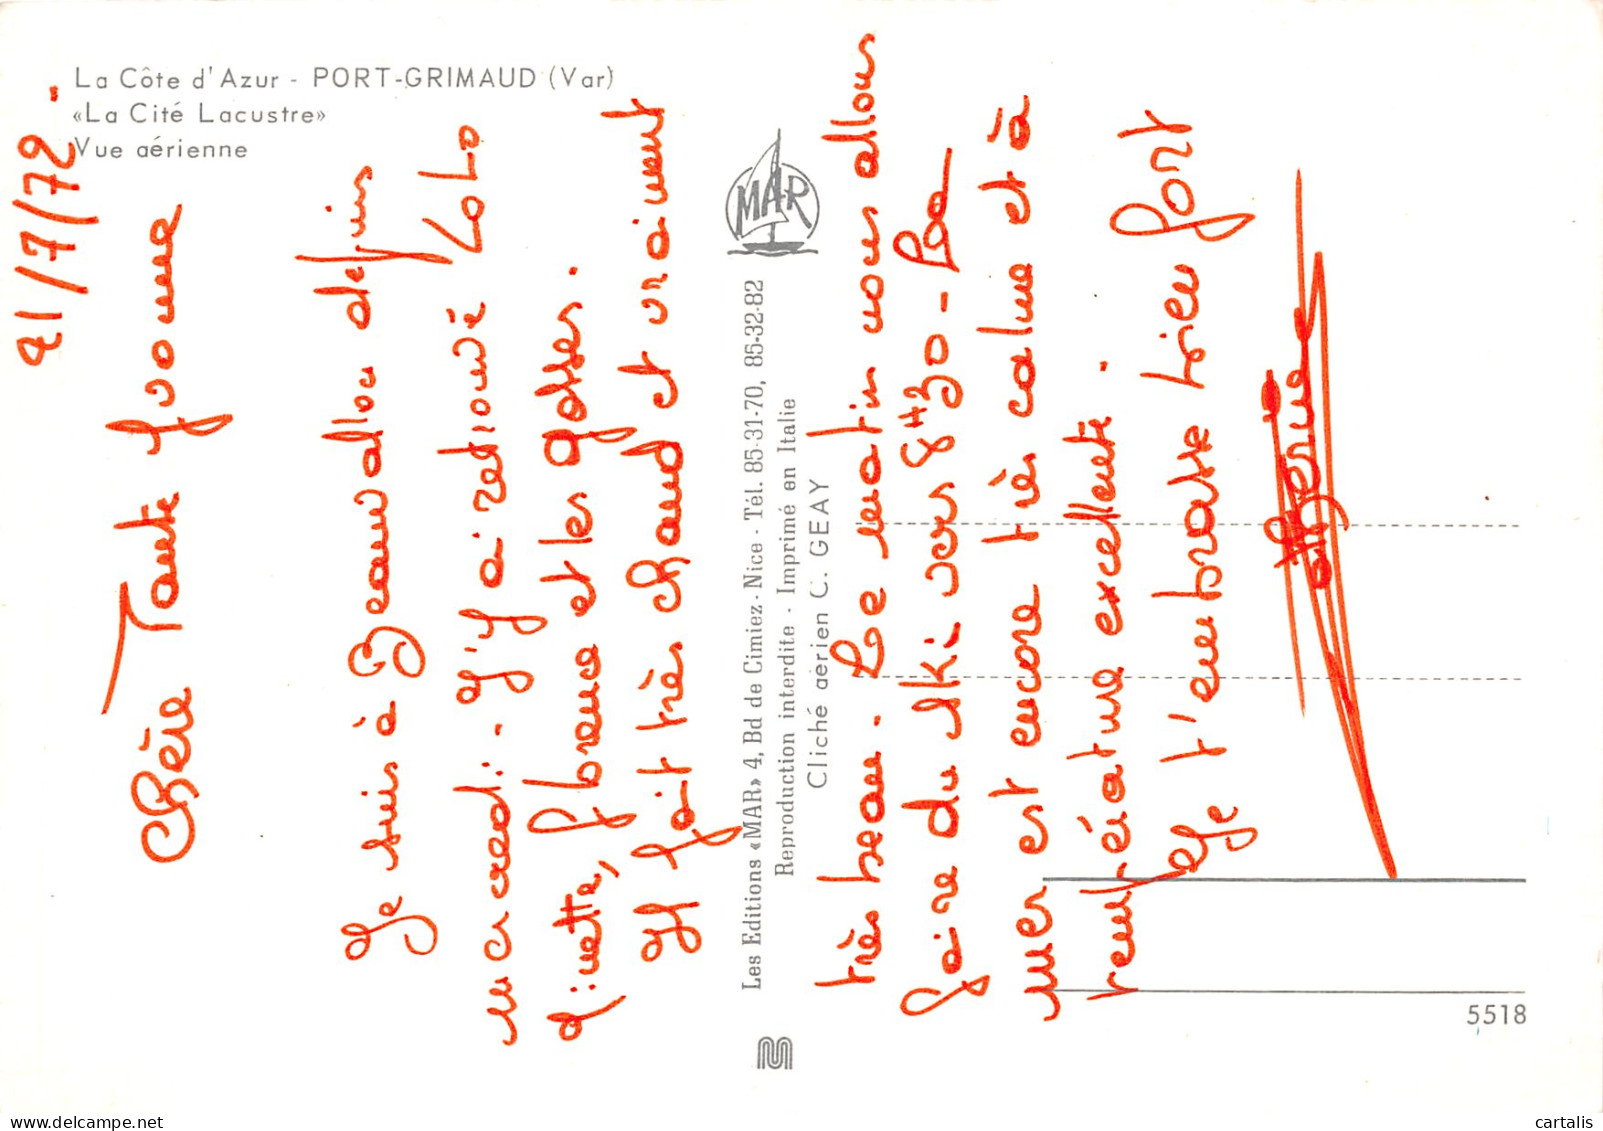 La Côte d'Azur - PORT-GRIMAUD (Var)
«La Cité Lacustre»
Vue aérienne
21/7/72.
Chère Tante Yvonne
Je suis à Beauvallon depuis
mercredi - J'y ai retrouvé Lolo
Ginette, Florence et les gosses.
Il fait très chaud et vraiment
très beau. Le matin nous allons
faire du ski vers 8H30 - La
mer est encore très calme et à
température excellente.
Je t'embrasse bien fort
Catherine
MAR
Les Editions «MAR» 4, Bd de Cimiez - Nice - Tél. 85-31-70, 85-32-82
Reproduction interdite - Imprimé en Italie
Cliché aérien C. GEAY
5518
cartalis
www.delcampe.net